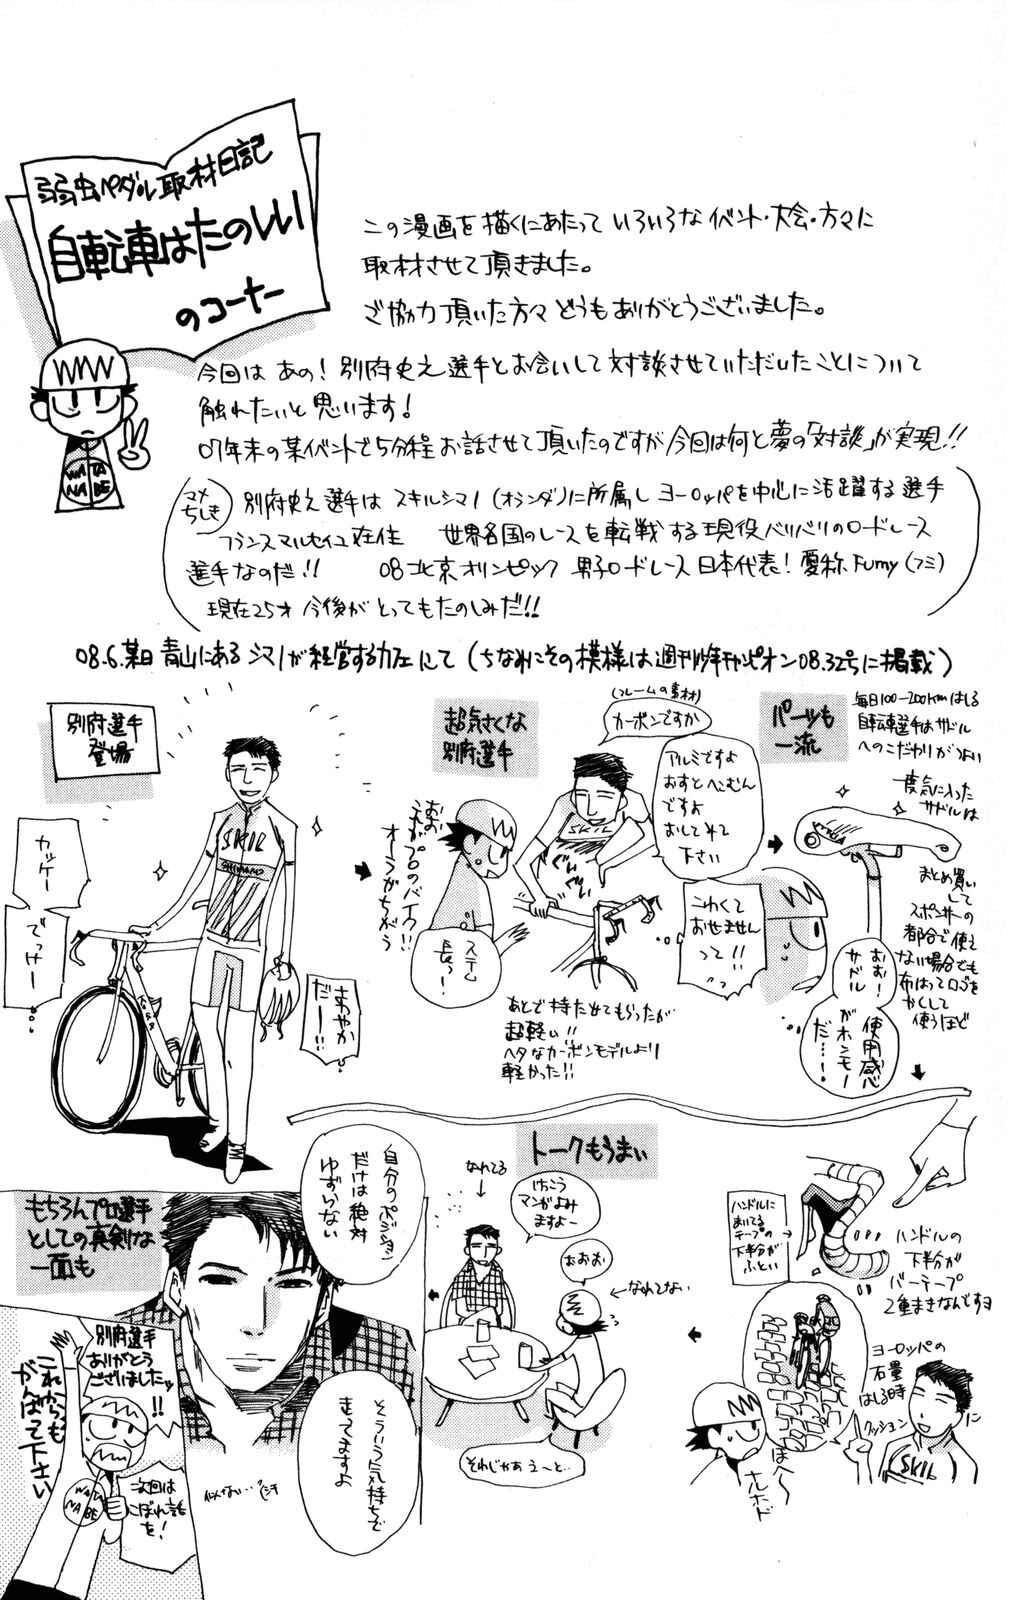 弱虫ペダル取材日記
自転車はたのしい
のコーナー
この漫画を描くにあたって いろいろな イベント・大会・方々に
取材させて頂きました。
ご協力頂いた方々 どうもありがとうございました。
今回は あの! 別府史之選手とお会いして 対談させていただいたことについて
触れたいと思います!
07年末の某イベントで5分程 お話させて頂いたのですが今回は何と夢の「対談」が実現!!
マメちしき
別府史之選手は スキルシマノ(オランダ)に所属し ヨーロッパを中心に活躍する選手
フランスマルセイユ在住 世界各国のレースを転戦する現役バリバリのロードレース
選手なのだ!! 08北京オリンピック 男子ロードレース日本代表! 愛称 Fumy(フミ)
現在25才 今後がとってもたのしみだ!!
08.6.某日 青山にある シマノが経営するカフェにて(ちなみにその模様は週刊少年チャンピオン08.32号に掲載)
別府選手
登場
カッケー
でっけー
SKIL
SHIMANO
さわやか
だー!!
超気さくな
別府選手
(フレームの素材)
カーボンですか
アルミですよ
おすとへこむん
ですよ
おしてみて
下さい
おお
これがプロのバイク!!
オーラがちがう
SKIL
ステム
長っ!
こわくて
おせません
って!!
あとで持たせてもらったが
超軽い!!
ヘタなカーボンモデルより
軽かった!!
パーツも
一流
毎日100-200kmはしる
自転車選手はサドル
へのこだわりがつよい
一度気に入った
サドルは
まとめ買い
して
スポンサーの
都合で使え
ない場合でも
布はってロゴを
かくして
使うほど
おお!
サドル
の使用感
がホンモノ
だ…!
ハンドルに
まいてる
テープの
下半分が
ふとい
ハンドルの
下半分が
バーテープ
2重まきなんですヨ
ヨーロッパの
石畳
はしる時
クッションに
SKIL
ほへ~
ナルホド
トークもうまい
なれてる
けっこう
マンガよみ
ますよー
おおお
←なれてない
それじゃあ え~と…
もちろんプロ選手
としての真剣な
一面も
自分のポジション
だけは絶対
ゆずらない
そういう気持ちで
走ってますよ
似てない…
別府選手
ありがとう
ございましたッ
!!
これからも
がんばって下さい
次回は
こぼれ話
を!
WATA
NABE